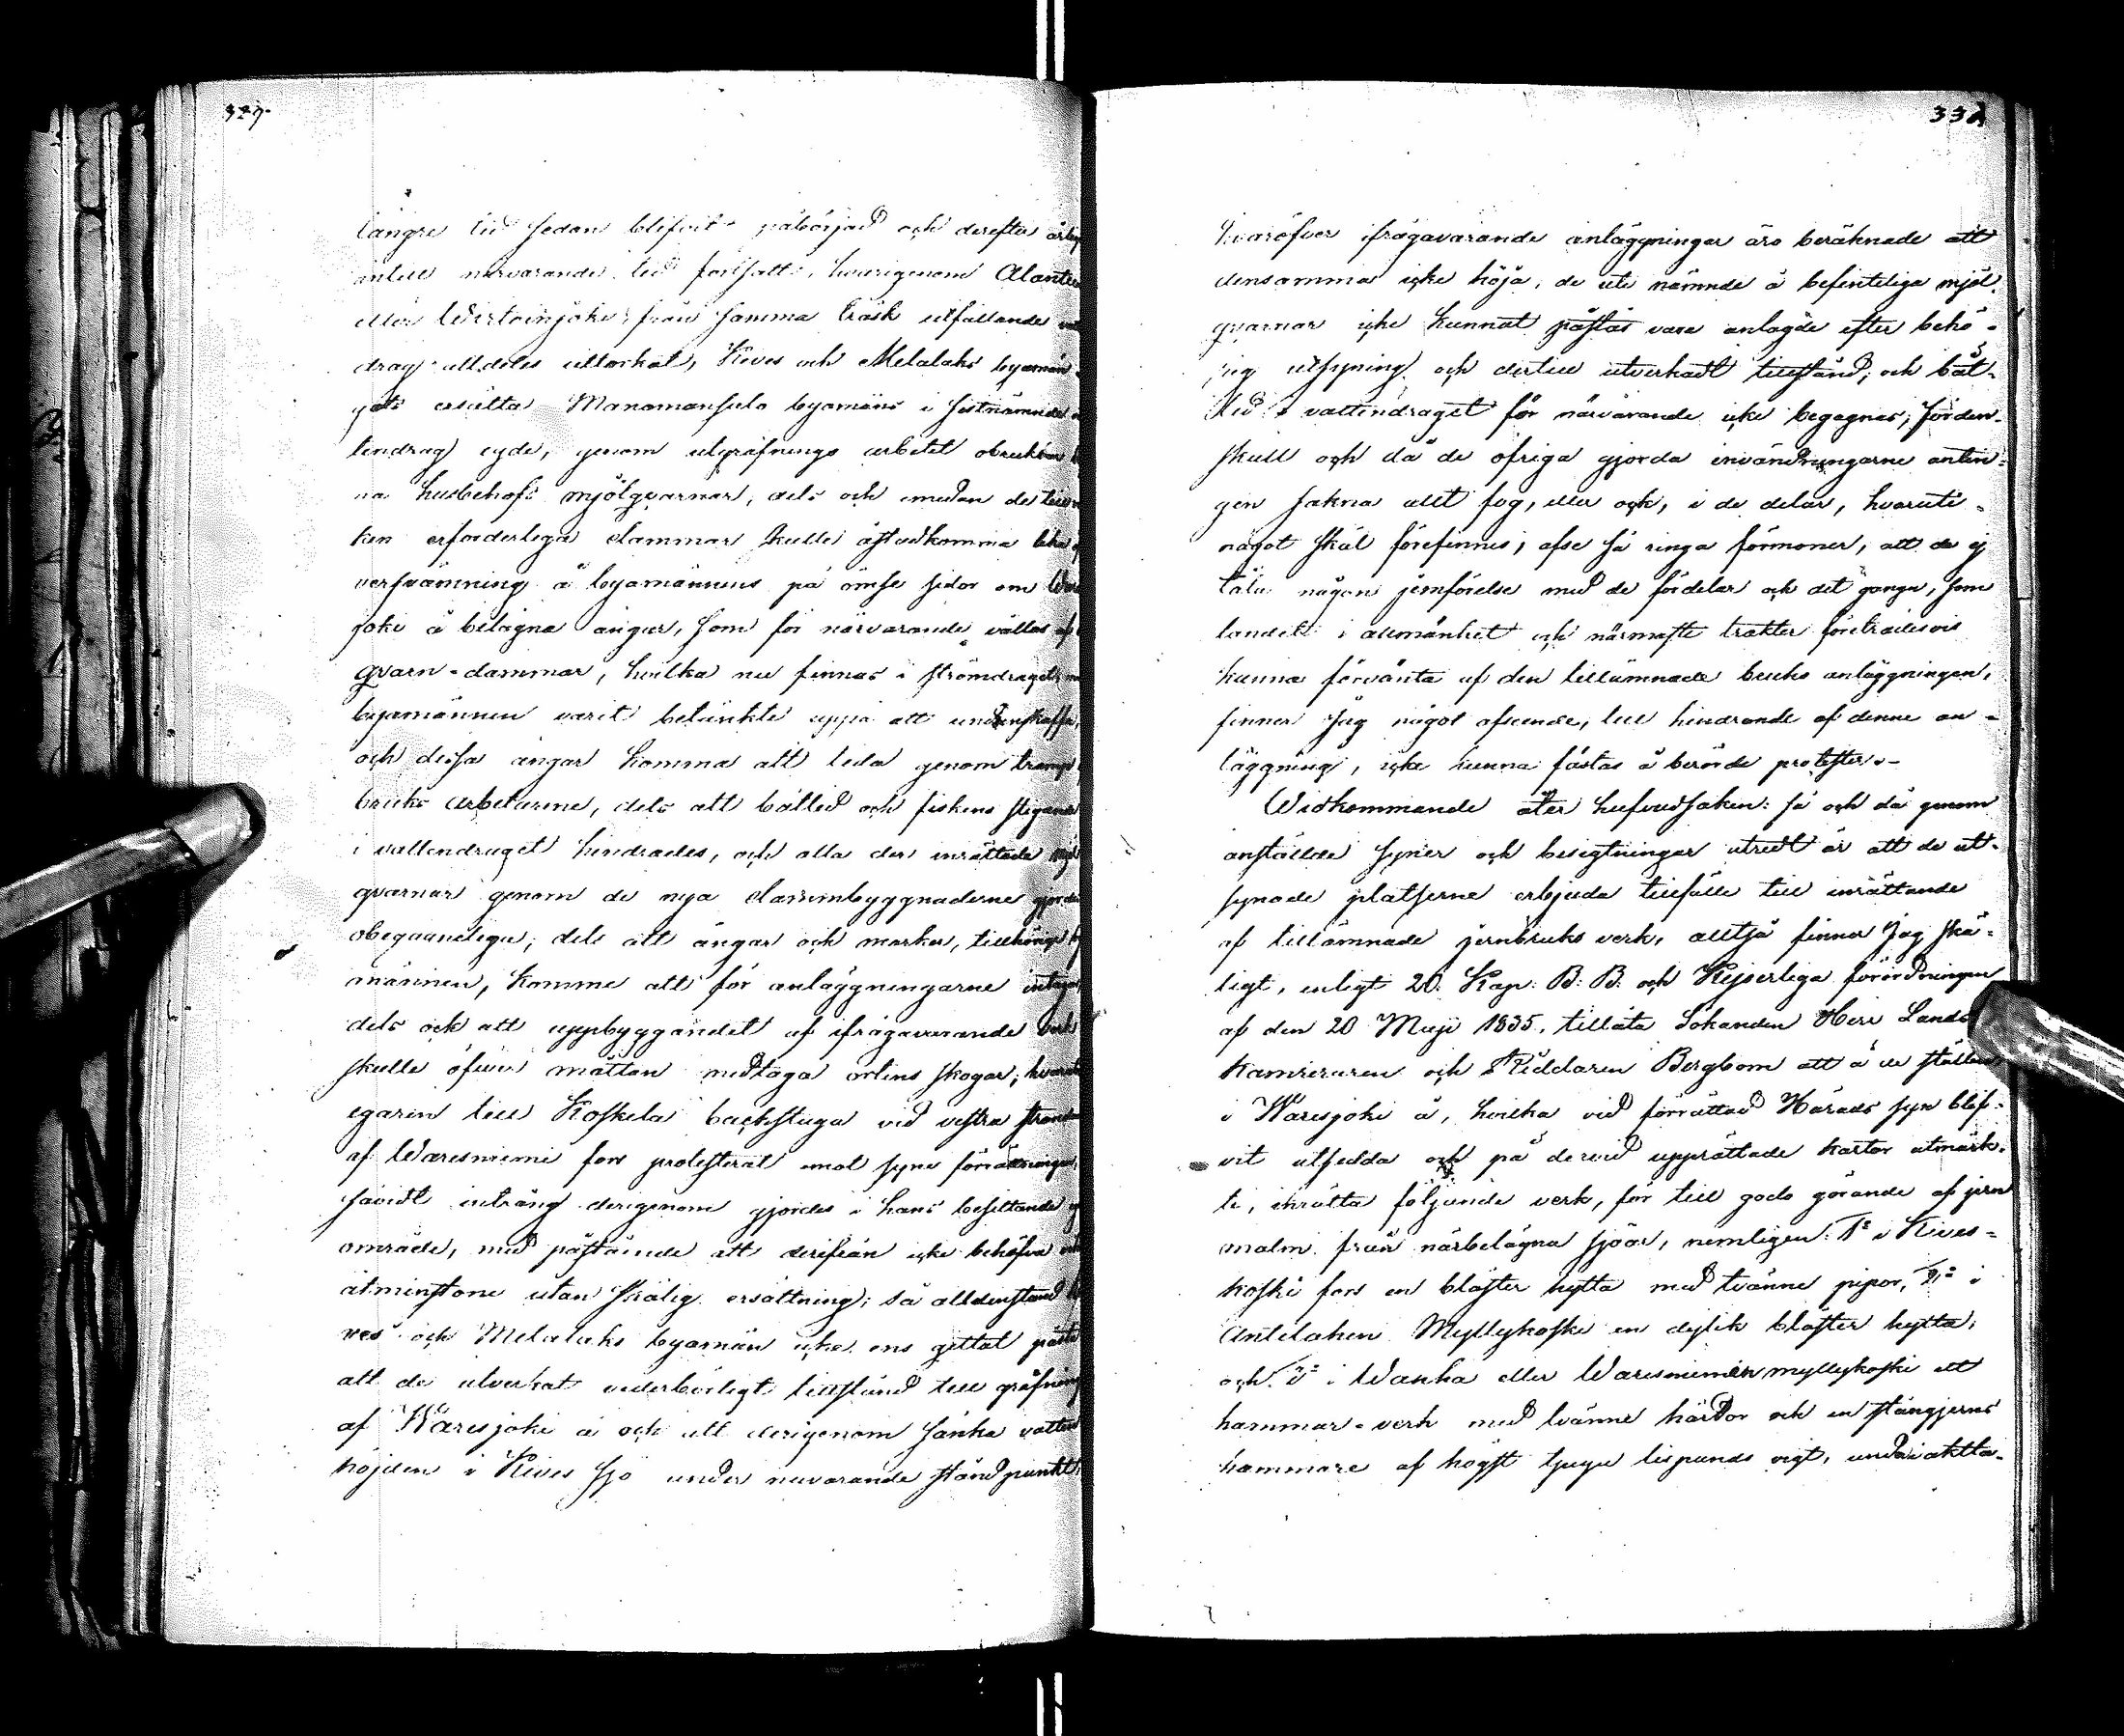 327.
längre tid sedan blifvit påbörjad och derefter årlig
intill närvarande tid fortsatt, hvarigenom Alanten
eller Wirtoinjoki från samma träsk utfallande vatt
drag alldeles uttorkat, Kives och Melalaks byamän
ersätta Manamansalo byamäns i sistnämnde
tendrag egde, genom utgräfnings arbetet obrukbara
na husbehofs mjölqvarnar, dels och emedan de till
ken erforderliga dammar skulle åstadkomma lika
versvämning å byamännens på ömse sidor om
joki å belägna ängar, som för närvarande vållas af
qvarn-dammar, hvilka nu finnas i strömdraget, men
byamännen varit betänkte uppå att undanskaffa,
och dessa ängar komma att lida genom tramp,
bruks arbetarene, dels att båtled och fiskens stigande
i vattendraget hindrades, och alla der inrättade mjöl
qvarnar genom de nya dammbyggnaderne gjordes
obegagneliga; dels att ängar och marker, tillhöriga by
männen, komme att för anläggningarne intagas,
dels ock att uppbyggandet af ifrågavarande verk
skulle öfver måttan medtaga ortens skogar; hvarutom
egaren till Koskela backstuga vid vestra strand
af Waresniemi fors protesterat emot syne förrättningen,
såvidt intrång derigenom gjordes i hans besittande
område, med påstående att derifrån icke behöfva
åtminstone utan skälig ersättning; så alldenstund Ki
ves och Melalaks byamän icke ens gittat påstå
att de utverkat vederbörligt tillstånd till gräfning
af Waresjoki å och att derigenom sänka vatten
höjden i Kives sjö under nuvarande ståndpunkt,
332
hvaröfver ifrågavarande anläggningar äro beräknade att
densamma icke höja, de uti nämnde å befinteliga mjöl-
qvarnar icke kunnat påstås vara anlagde efter behö-
rig utsyning och dertill utverkadt tillstånd; och båt-
led i vattendraget för närvarande icke begagnas; förden-
skull och då de öfriga gjorda invändningarne antin-
gen sakna allt fog, eller ock, i de delar, hvaruti
något skäl förefinnes, afse så ringa förmoner, att de ej
tåla någon jemförelse med de fördelar och det gagn, som
landet i allmänhet och närmaste trakter företrädesvis
kunna förvänta af den tillämnade bruks anläggningen,
finner Jag något afseende, till hindrande af denne an-
läggning, icke kunna fästas å berörde protester.-
Widkommande åter hufvudsaken: så och då genom
anställde syner och besigtningar utredt är att de ut-
synade platserne erbjuda tillfälle till inrättande
af tillämnade jernbruks verk, alltså finner Jag skä-
ligt, enligt 20. Kap: B: B: och Kejserliga förordningen
af den 20 Maji 1835, tillåta Sökanden Herr Lands
kamreraren och Riddaren Bergbom att å de ställen
i Waresjoki å, hvilka vid förrättad Härads syn blif-
vit utsedda och på dervid upprättade kartor utmärk-
te, inrätta följande verk, för till godo görande af jern
malm från närbelägna sjöar, nemligen: 1º i Kives-
koski fors en blåster hytta med tvänne pipor, 2º i
Anttilaken Myllykoski en dylik blåster hytta,
och 3º i Wanha eller Waresniemen myllykoski ett
hammar-verk med tvänne härdor och en stångjerns
hammare af högst tjugu lispunds vigt, under iaktta-